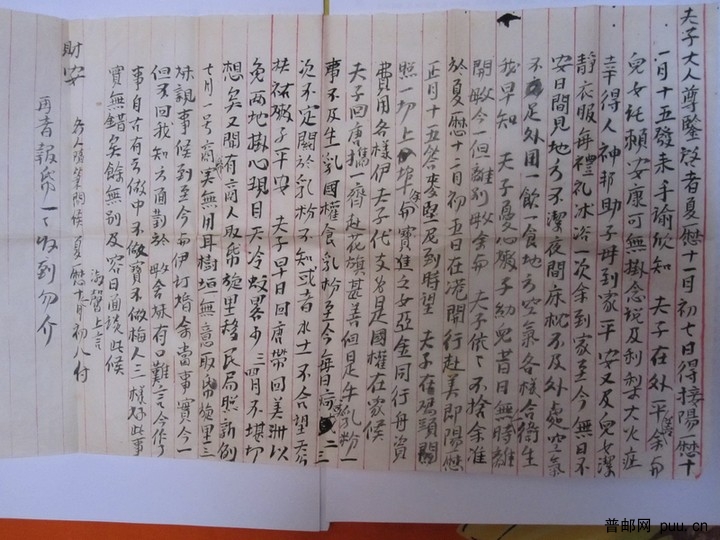 夫子大人尊鑒啟者夏曆十一月初七日得接陽曆十
一月十五發來手諭欣知 夫子在外平善余與
兒女托賴安康可無掛念說及利梨大火症
幸得人神邦助子母到家平安又及兒女潔
靜衣服每禮礼冰浴一次余到家至今無日不
安日間見地方不潔夜間床枕不及外處空氣
不足外用一飲一食地方空氣各樣合衛生
我早知 夫子憂心掀子幼兒昔日無時離
開 今一但離別 余與夫子依依不捨余准
於夏曆十二月初五日在港開行赴美即陽曆
正月十五答 尼到時望 夫子在碼頭
照一切上埠 余與寶進之女亞金同行舟資
費用各樣伊夫子代支 是國權在家候
夫子回唐攜一齊赴花旗甚善但是牛乳粉一
事不及生乳國權食乳粉至今每日 二三
次不定關於乳粉不知或者水土不合望天
扶祐 子平安 夫子早日回唐帶回美洲以
免兩地掛心現目天冷蚊畧少三四月不堪切
想矣又聞有商人取帋旋里移民局照新例
七月一号 實無用耳樹垣無意取帋旋里三
妹親事候到至今而伊訂婚余當事實今一
但不回我知方通對於 舍妹有口難言今作
事自古有云做中不做寶不做梅人三樣好此事
實無錯矣餘無別及容日面談此候
財安
各人 問候夏曆十一月初八付
海 上言
再者報帋一一收到勿介
普邮网 puu.cn